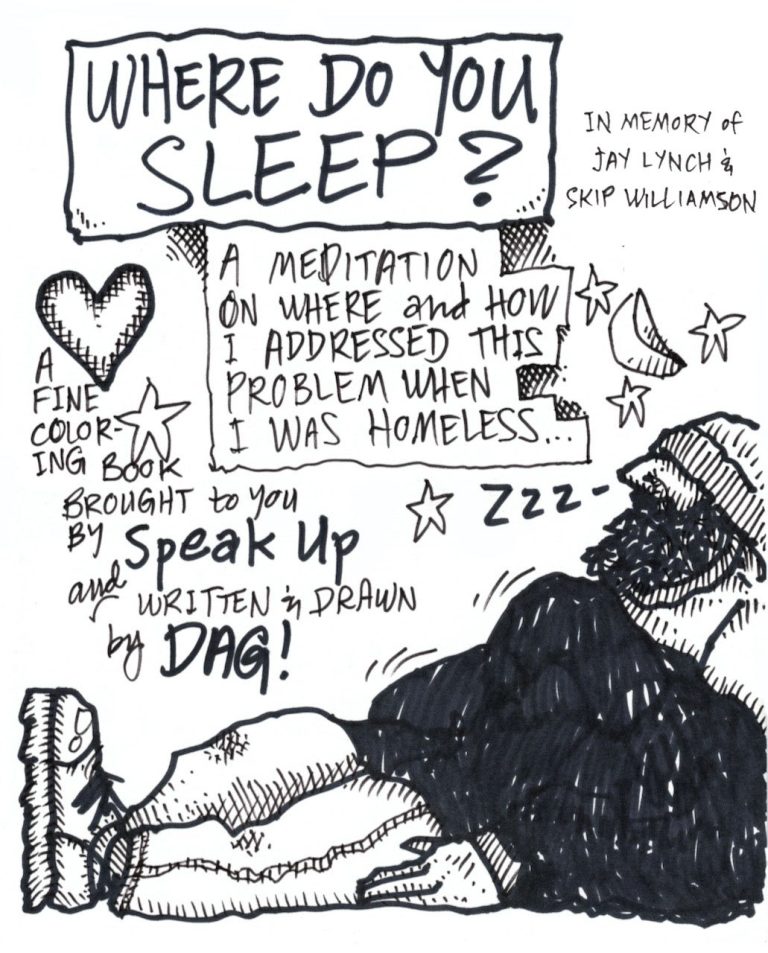 WHERE DO YOU
SLEEP?
IN MEMORY of
JAY LYNCH &
SKIP WILLIAMSON
A MEDITATION
ON WHERE and HOW
I ADDRESSED THIS
PROBLEM WHEN
I WAS HOMELESS...
A
FINE
COLOR-
ING BOOK
BROUGHT to you
BY Speak Up
and WRITTEN & DRAWN
by DAG!
Zzz-